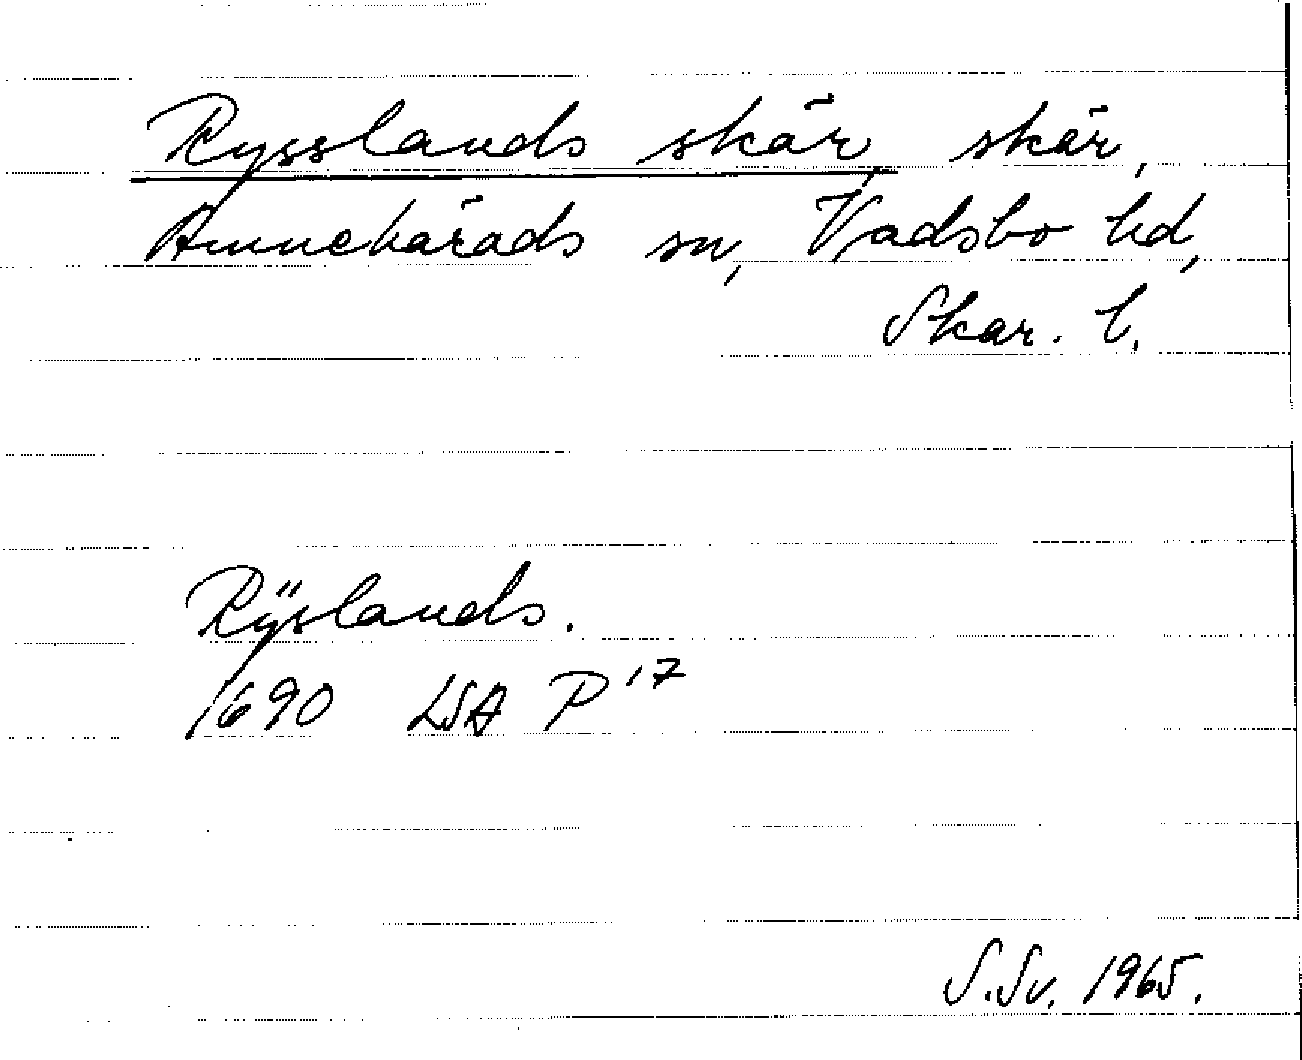 Rysslands skär, skär,
Amnehärads sn, Vadsbo hd,
Skar. l.
Rÿslands.
1690 LSA P 17
S.Sv. 1965.